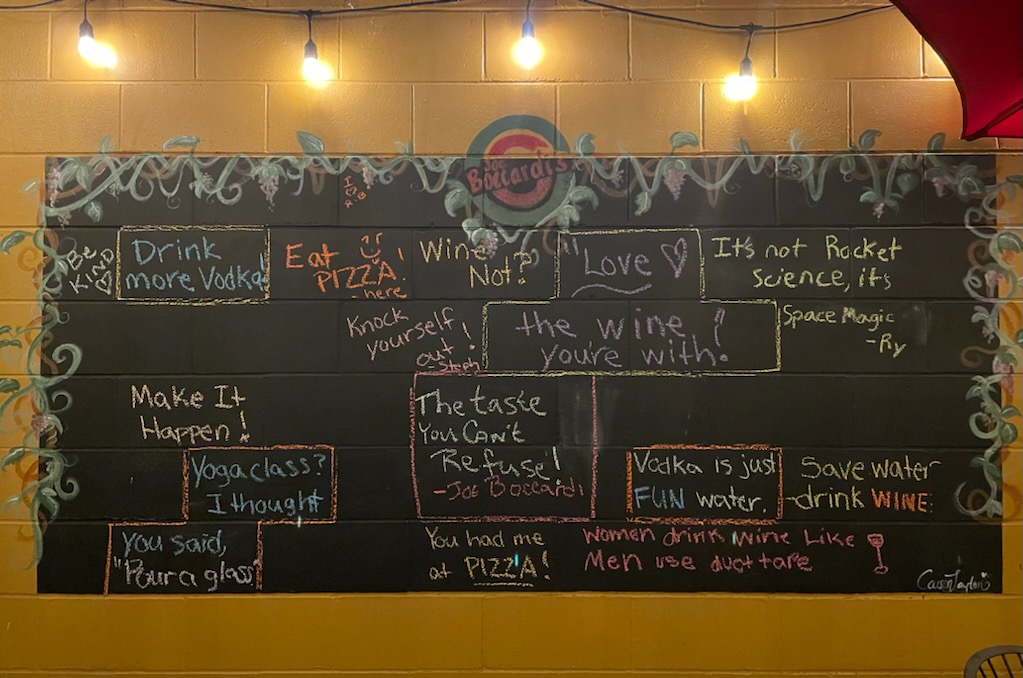 Boccardi's
Be
KIND
Drink
more Vodka!
Eat
PIZZA!
-here
Wine
Not?
"Love
the wine
you're with!
It's not Rocket
science, it's
Space Magic
-Ry
Knock
yourself
out!
-Steph
Make It
Happen!
The taste
You Can't
Refuse!
-Joe Boccardi
Yoga class?
I thought
you said,
"Pour a glass"
Vodka is just
FUN water.
Save water
-drink WINE.
You had me
at PIZZA!
Women drink Wine Like
Men use duct tape